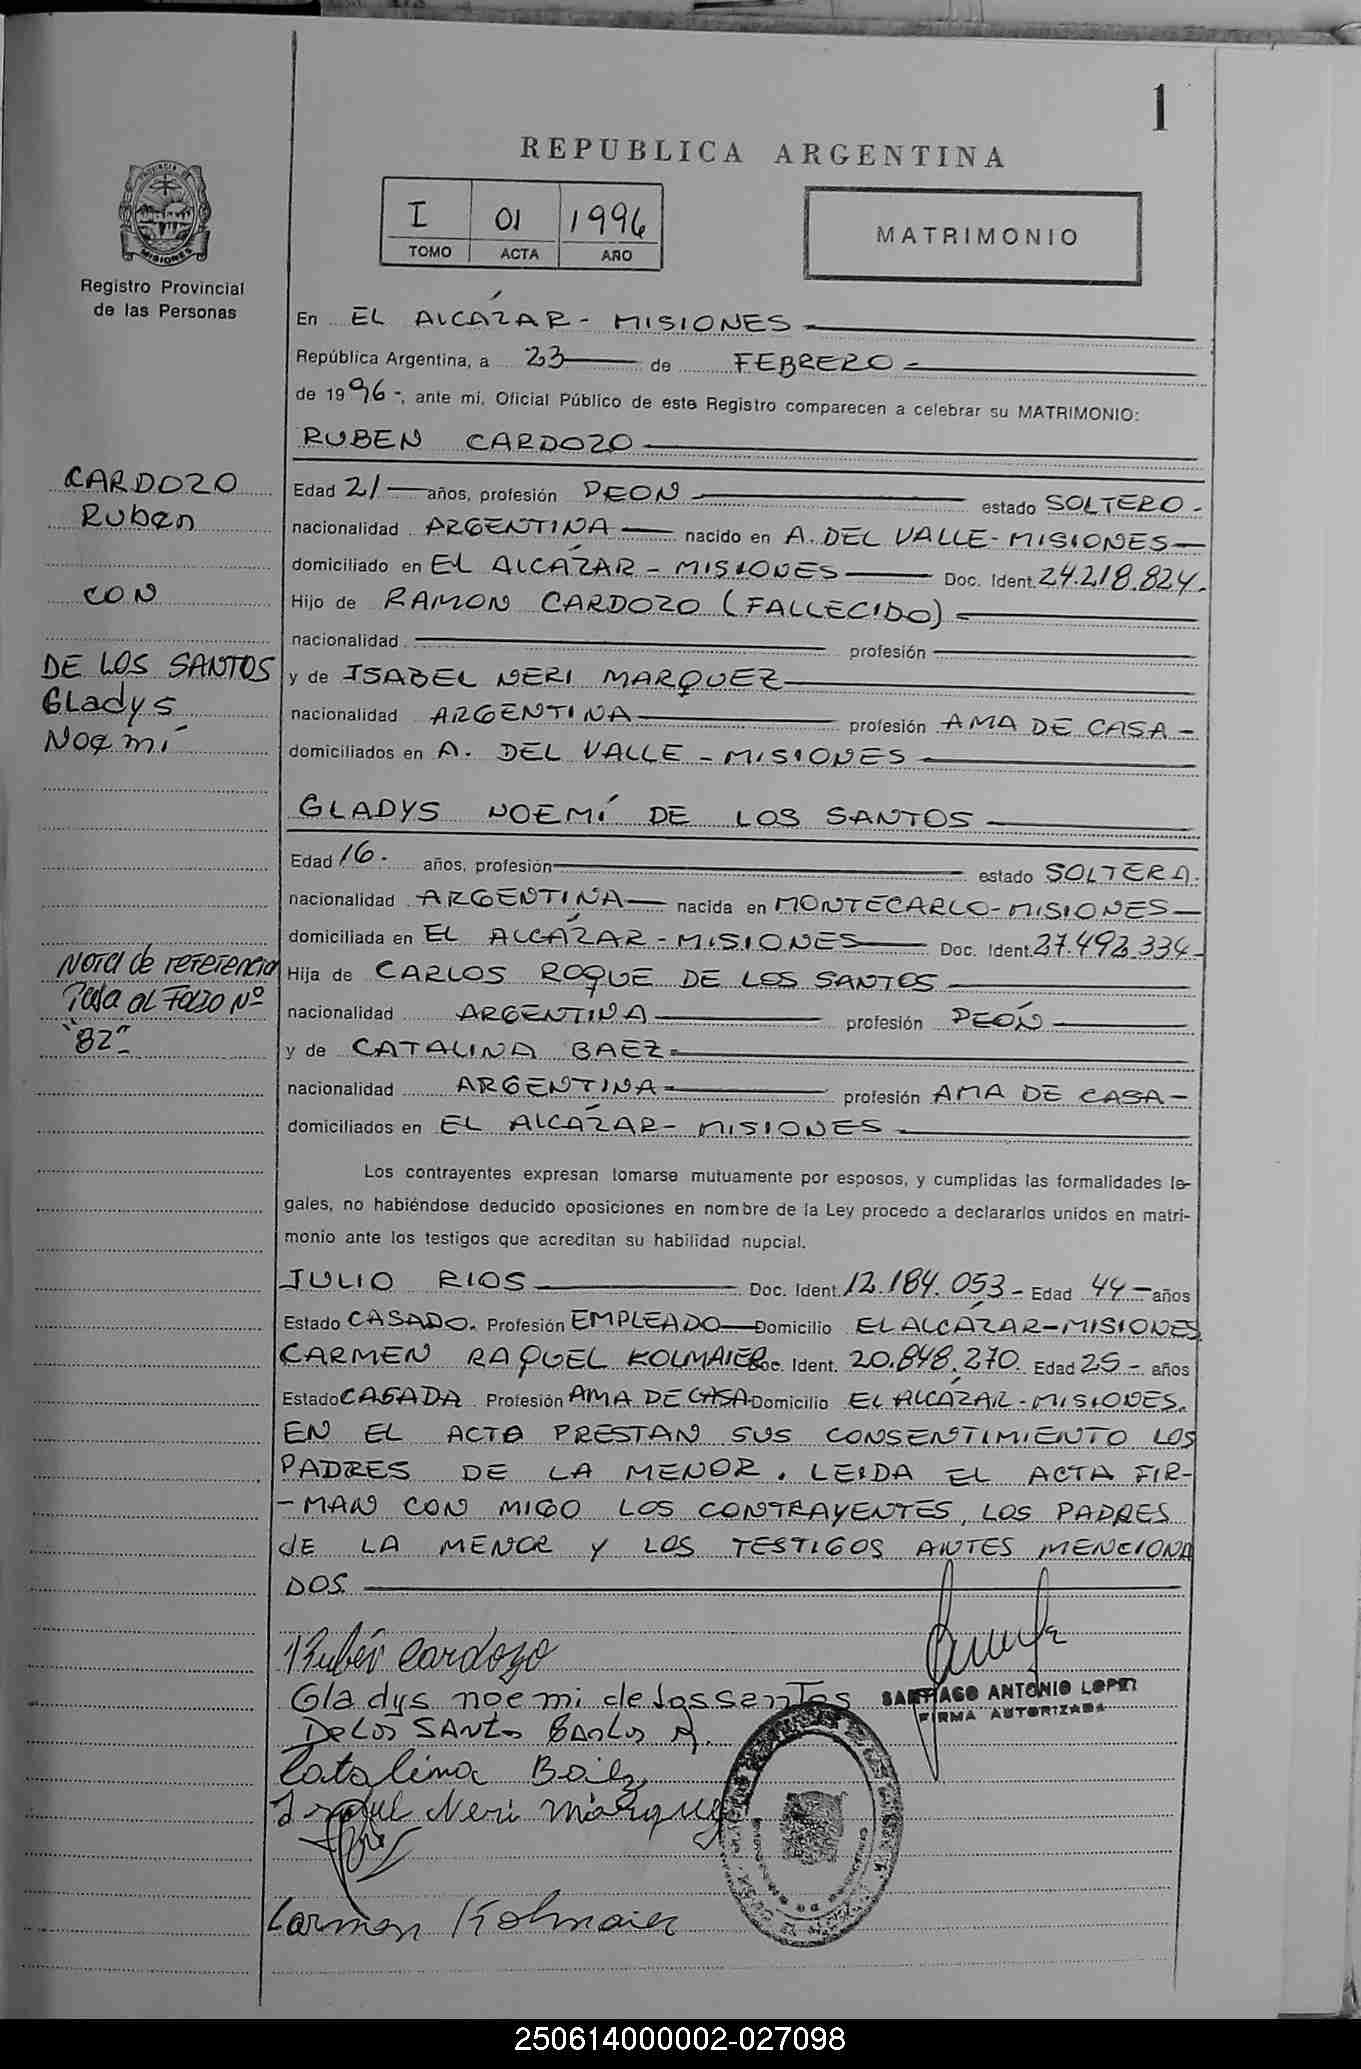 1
REPUBLICA ARGENTINA
I 01 1996
TOMO ACTA AÑO
MATRIMONIO
PROVINCIA DE
MISIONES
Registro Provincial
de las Personas
En EL ALCÁZAR - MISIONES
República Argentina, a 23 de FEBRERO
de 1996-, ante mi, Oficial Público de este Registro comparecen a celebrar su MATRIMONIO:
RUBEN CARDOZO
Edad 21 años, profesión PEON estado SOLTERO.
nacionalidad ARGENTINA nacido en A. DEL VALLE - MISIONES
domiciliado en EL ALCÁZAR - MISIONES Doc. Ident. 24.218.824.
Hijo de RAMON CARDOZO (FALLECIDO)
nacionalidad profesión
y de ISABEL NERI MARQUEZ
nacionalidad ARGENTINA profesión AMA DE CASA -
domiciliados en A. DEL VALLE - MISIONES
GLADYS NOEMÍ DE LOS SANTOS
Edad 16. años, profesión estado SOLTERA.
nacionalidad ARGENTINA nacida en MONTECARLO - MISIONES
domiciliada en EL ALCÁZAR - MISIONES Doc. Ident. 27.492.334-
Hija de CARLOS ROQUE DE LOS SANTOS
nacionalidad ARGENTINA profesión PEÓN
y de CATALINA BAEZ
nacionalidad ARGENTINA profesión AMA DE CASA -
domiciliados en EL ALCÁZAR - MISIONES
CARDOZO
Ruben
CON
DE LOS SANTOS
Gladys
Noemí
Nota de referencia
Pasa al Folio Nº
"82"
Los contrayentes expresan tomarse mutuamente por esposos, y cumplidas las formalidades le-
gales, no habiéndose deducido oposiciones en nombre de la Ley procedo a declararlos unidos en matri-
monio ante los testigos que acreditan su habilidad nupcial.
JULIO RIOS Doc. Ident. 12.184.053 - Edad 44 años
Estado CASADO. Profesión EMPLEADO Domicilio EL ALCÁZAR - MISIONES
CARMEN RAQUEL KOLMAIER Doc. Ident. 20.848.270. Edad 25 - años
Estado CASADA Profesión AMA DE CASA Domicilio EL ALCÁZAR - MISIONES.
EN EL ACTO PRESTAN SUS CONSENTIMIENTO LOS
PADRES DE LA MENOR. LEIDA EL ACTA FIR-
-MAN CON MIGO LOS CONTRAYENTES, LOS PADRES
DE LA MENOR Y LOS TESTIGOS ANTES MENCIONA
DOS
Rubén Cardozo
Gladys noemi de los santos
SANTIAGO ANTONIO LOPEZ
FIRMA AUTORIZADA
De Los SANTOS CARLOS R.
Catalina Baez
Isabel Neri Marquez
Carmen Kolmaier
250614000002-027098